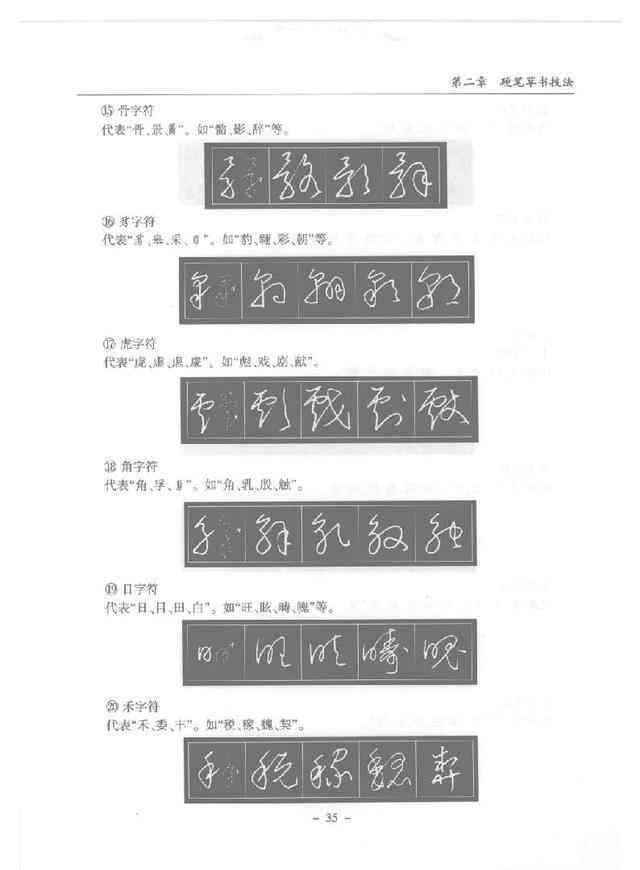 第二章 硬笔草书技法
⑮ 骨字符
代表“骨、景、𤔔”。如“髓、影、辞”等。
⑯ 豸字符
代表“豸、皋、采、”。如“豹、翱、彩、朝”等。
⑰ 虎字符
代表“虎、虚、虘、虔”。如“彪、戏、剧、献”。
⑱ 角字符
代表“角、孚、”。如“角、乳、殷、触”。
⑲ 日字符
代表“日、目、田、白”。如“旺、眩、畴、魄”等。
⑳ 禾字符
代表“禾、委、丰”。如“税、稼、魏、契”。
- 35 -